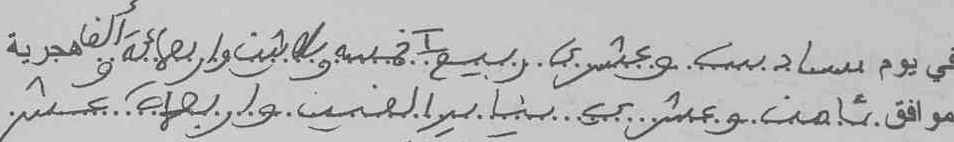 في يوم سادس وعشرين ربيع آخر خمسه وثلاثين واربعمائة وألفا هجرية
موافق ثامن وعشرين يناير الفين واربعة عشر